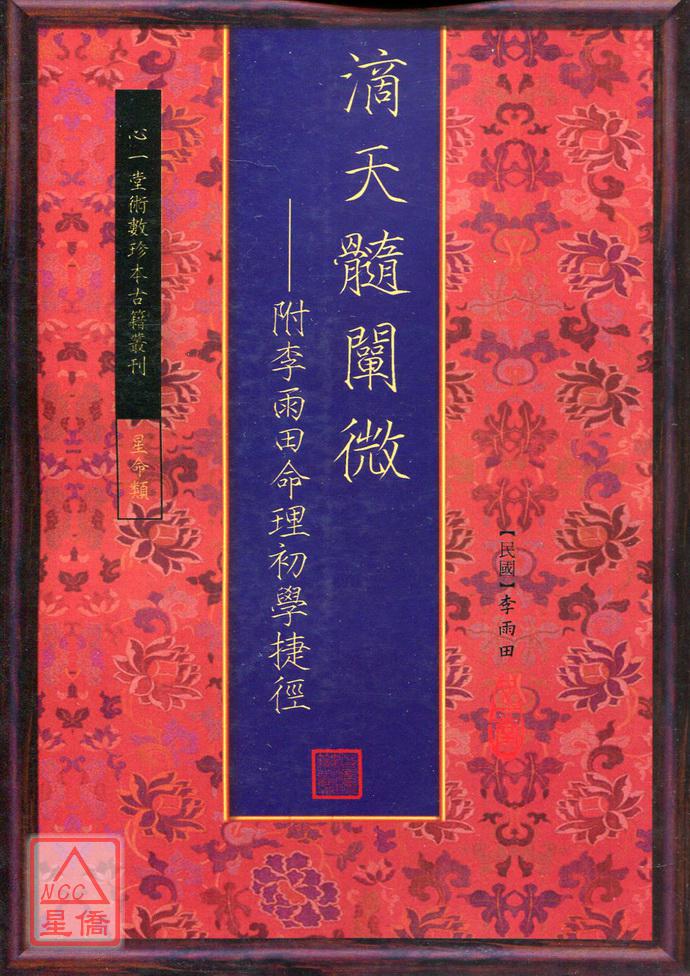 滴天髓闡微
——附李雨田命理初學捷徑
【民國】李雨田
心一堂術數珍本古籍叢刊
星命類
NCC
星僑